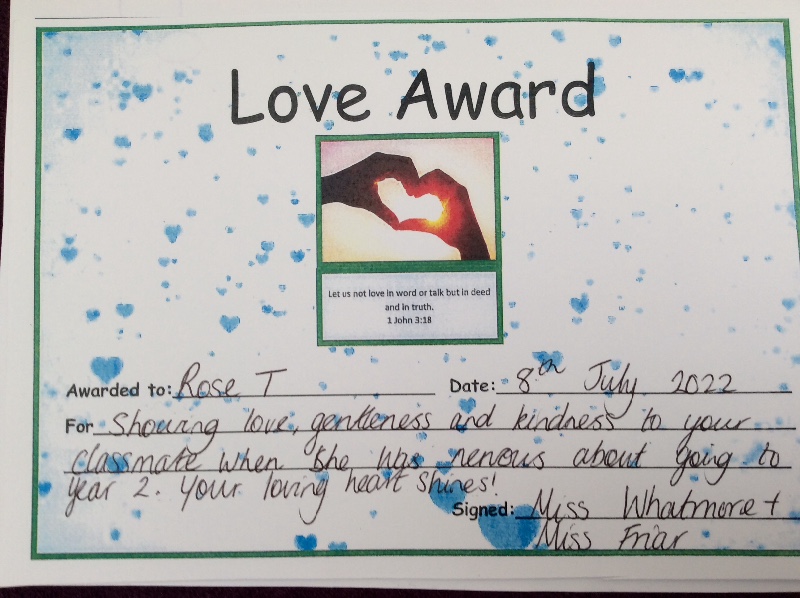 Love Award
Let us not love in word or talk but in deed
and in truth.
1 John 3:18
Awarded to: Rose T
Date: 8th July 2022
For Showing love, gentleness and kindness to your
classmate when she was nervous about going to
year 2. Your loving heart shines!
Signed: Miss Whatmore +
Miss Friar